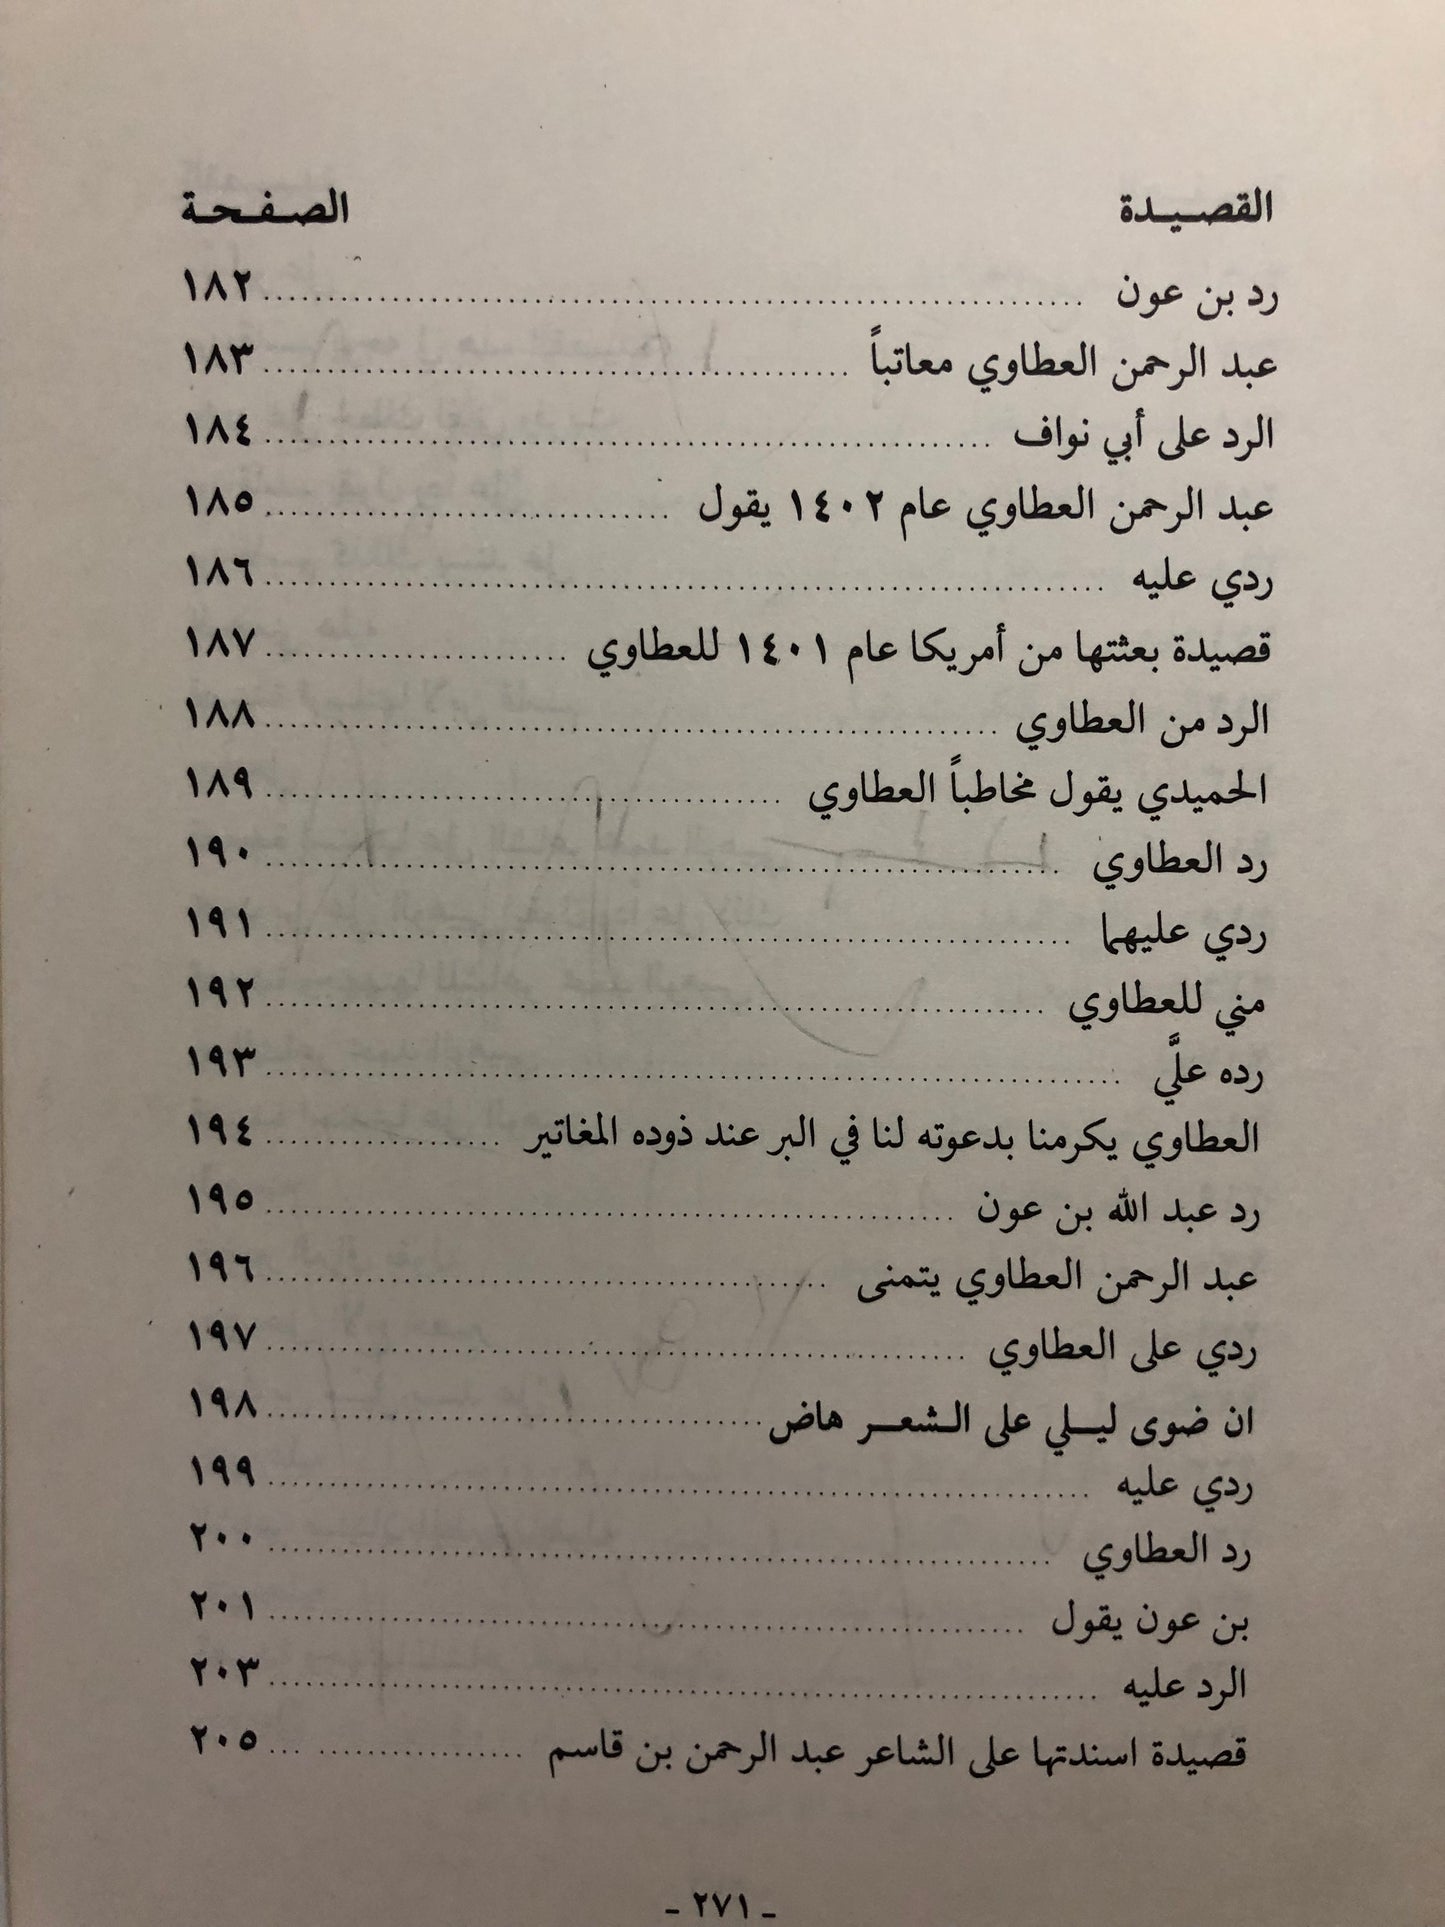 القصيدة الصفحة
رد بن عون ١٨٢
عبد الرحمن العطاوي معاتباً ١٨٣
الرد على أبي نواف ١٨٤
عبد الرحمن العطاوي عام ١٤٠٢ يقول ١٨٥
ردي عليه ١٨٦
قصيدة بعثتها من أمريكا عام ١٤٠١ للعطاوي ١٨٧
الرد من العطاوي ١٨٨
الحميدي يقول مخاطباً العطاوي ١٨٩
رد العطاوي ١٩٠
ردي عليهما ١٩١
مني للعطاوي ١٩٢
رده عليَّ ١٩٣
العطاوي يكرمنا بدعوته لنا في البر عند ذوده المغاتير ١٩٤
رد عبد الله بن عون ١٩٥
عبد الرحمن العطاوي يتمنى ١٩٦
ردي على العطاوي ١٩٧
ان ضوى ليلي على الشعر هاض ١٩٨
ردي عليه ١٩٩
رد العطاوي ٢٠٠
بن عون يقول ٢٠١
الرد عليه ٢٠٣
قصيدة اسندتها على الشاعر عبد الرحمن بن قاسم ٢٠٥
- ٢٧١ -